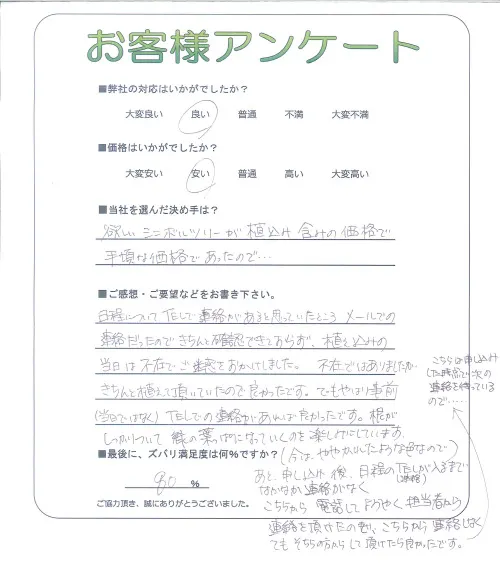 お客様アンケート
■弊社の対応はいかがでしたか？
大変良い 良い 普通 不満 大変不満
■価格はいかがでしたか？
大変安い 安い 普通 高い 大変高い
■当社を選んだ決め手は？
欲しい シンボルツリーが 植込み 含みの価格で
手頃な価格であったので…
■ご感想・ご要望などをお書き下さい。
日程について TELで連絡があると思っていたところ メールでの
連絡だったので きちんと確認できておらず、植え込みの
当日は不在でご迷惑をおかけしました。 不在ではありましたが
きちんと植えて頂いていたので良かったです。でもやはり事前
(当日ではなく) TELでの連絡があれば良かったです。根が
しっかりついて 緑の葉っぱになっていくのを楽しみにしています。
(今は、やや かれたような色なので)
■最後に、ズバリ満足度は何%ですか？
80 %
ご協力頂き、誠にありがとうございました。
あと、申し込み後、日程のTELが入るまで
(連絡)
なかなか連絡がなく
こちらから 電話して ようやく 担当者から
連絡を頂けたのも、こちらから連絡しなく
ても そちらの方からして頂けたら良かったです。
こちらは申し込み
した時点で次の
連絡を待っている
ので……